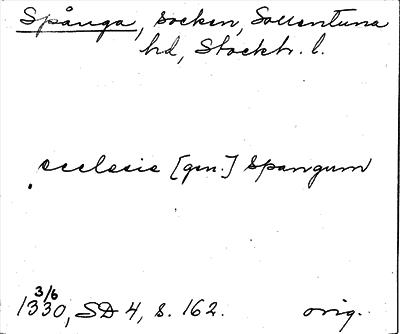 Spånga, socken, Sollentuna
hd, Stockh. l.
ecclesie [gen.] Spangum
3/6
1330, SD 4, s. 162. orig.